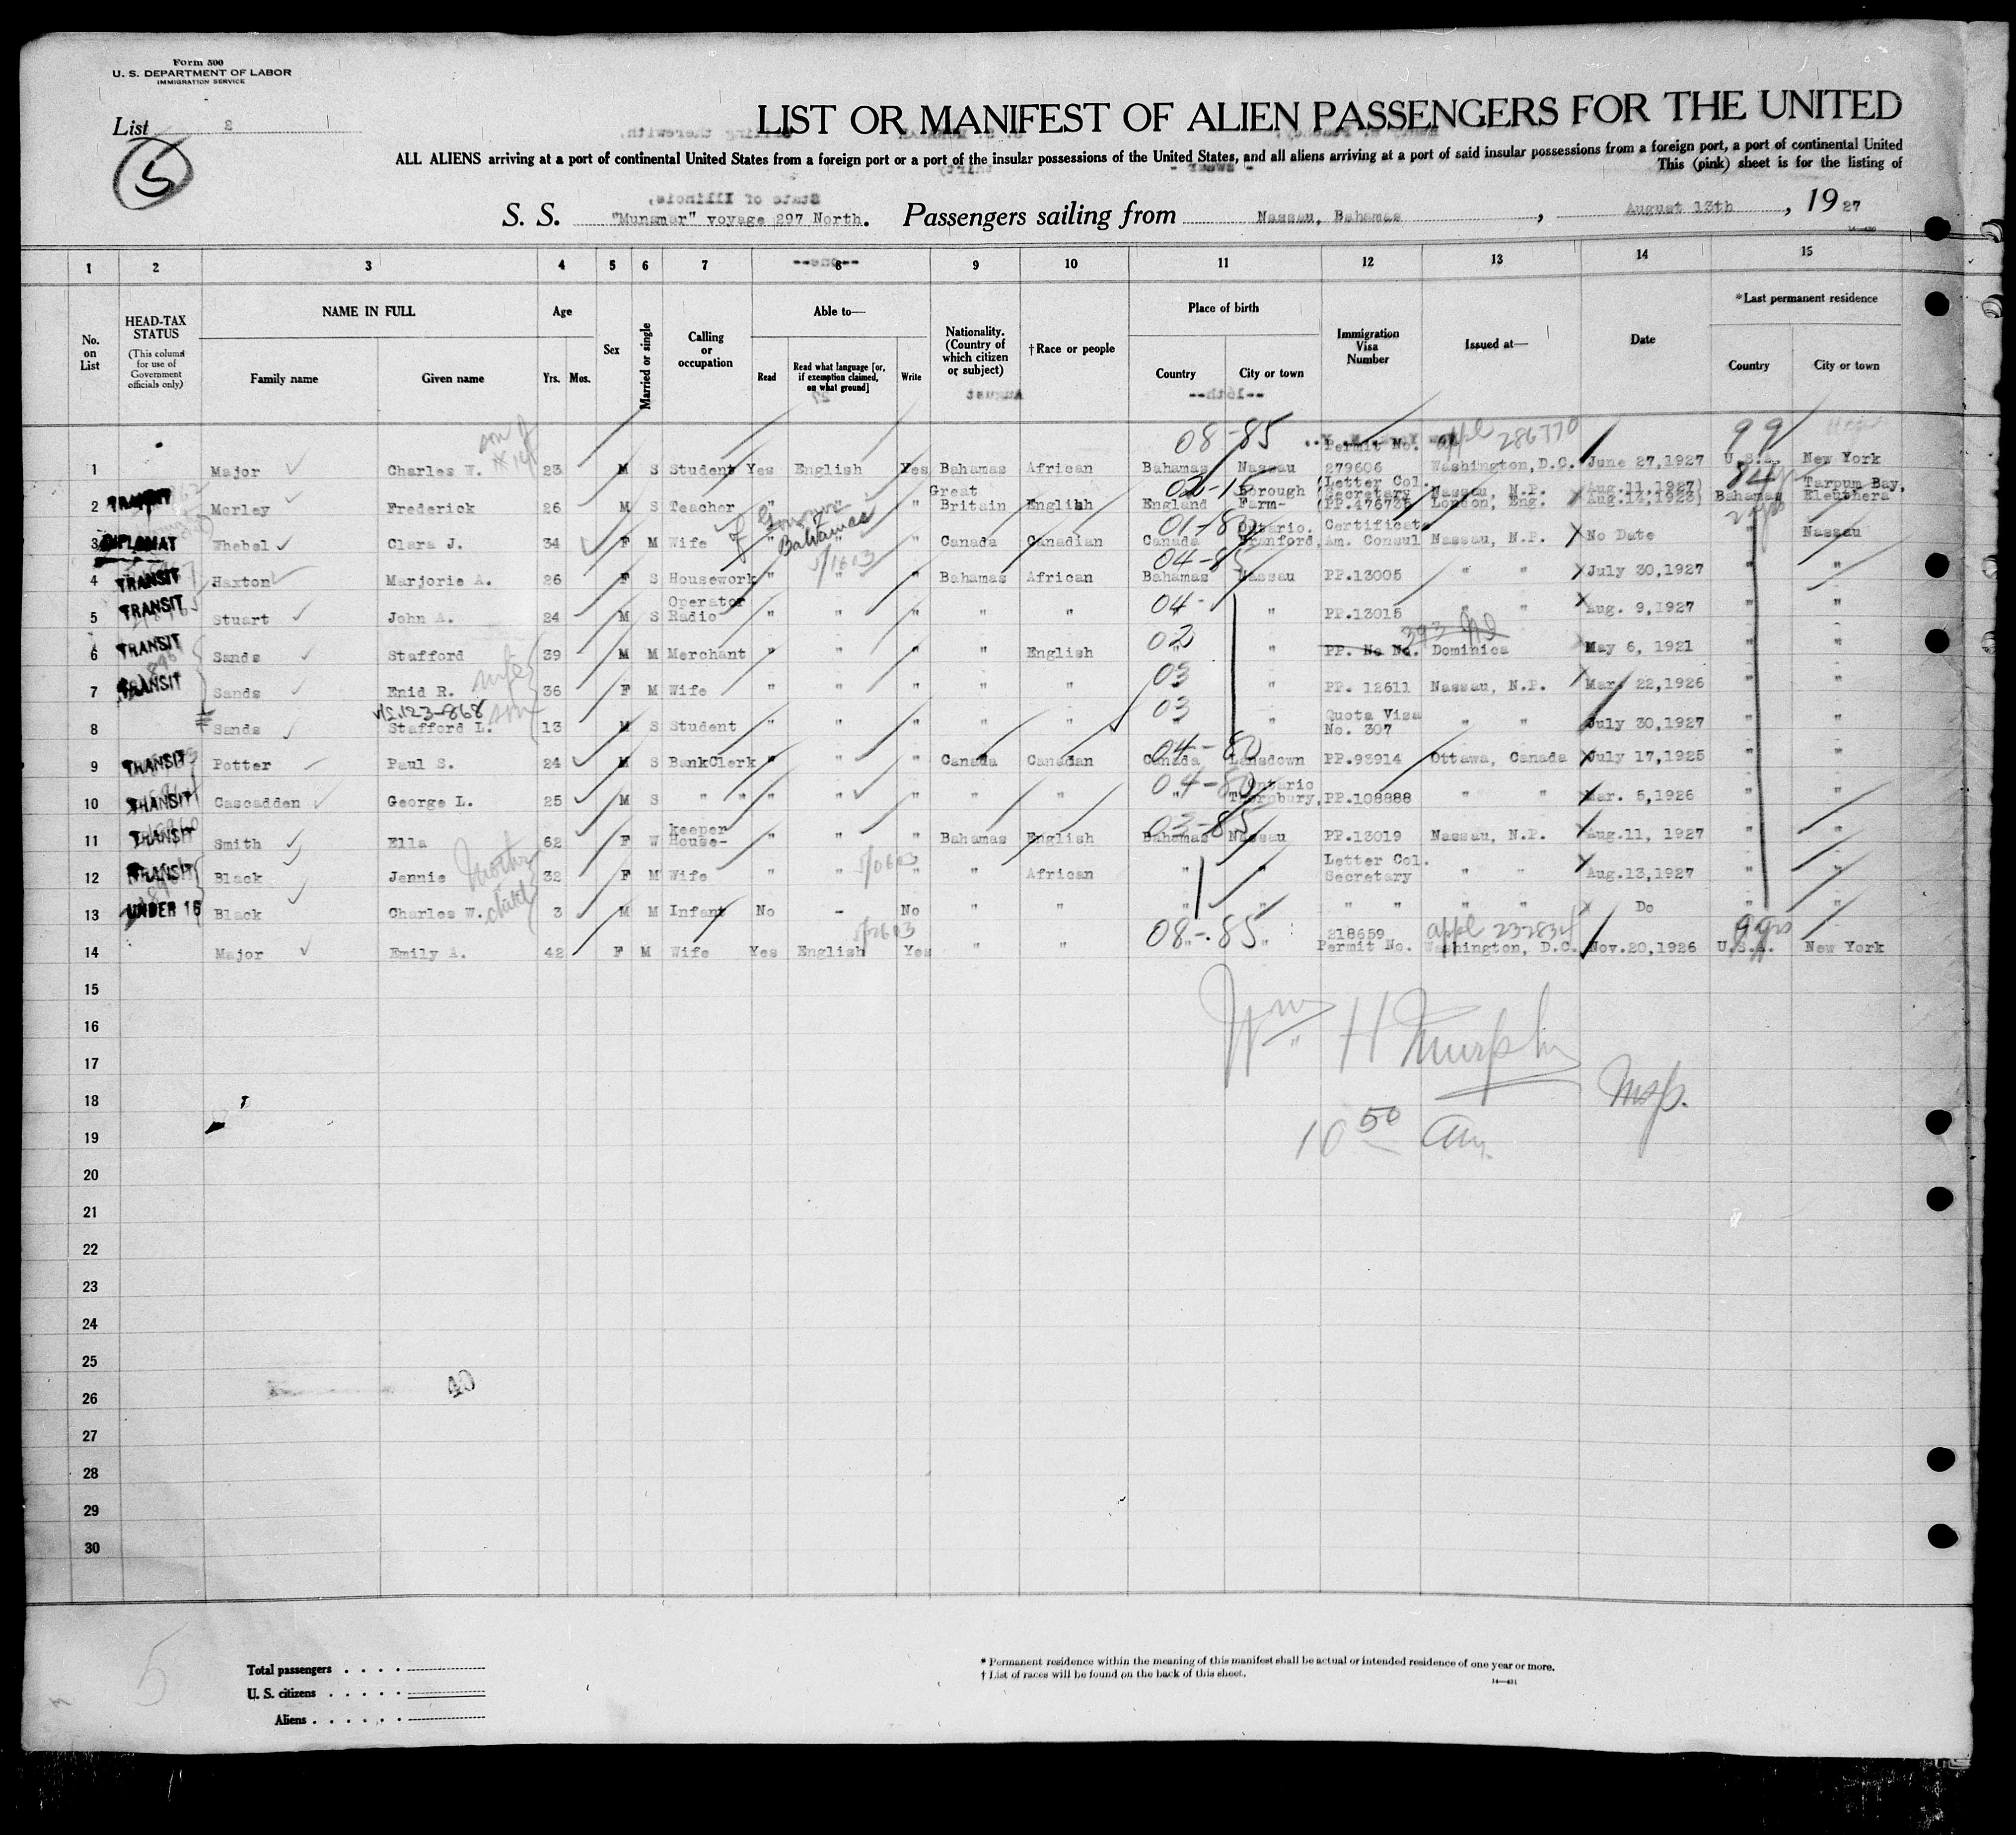 Form 500
U. S. DEPARTMENT OF LABOR
IMMIGRATION SERVICE
List 2
5
LIST OR MANIFEST OF ALIEN PASSENGERS FOR THE UNITED
ALL ALIENS arriving at a port of continental United States from a foreign port or a port of the insular possessions of the United States, and all aliens arriving at a port of said insular possessions from a foreign port, a port of continental United
This (pink) sheet is for the listing of
S. S. "Munamar" voyage 297 North. Passengers sailing from Nassau, Bahamas , August 13th , 19 27
1 2 3 4 5 6 7 8 9 10 11 12 13 14 15
No. on List
HEAD-TAX STATUS (This column for use of Government officials only)
NAME IN FULL
Family name Given name
Age Yrs. Mos.
Sex
Married or single
Calling or occupation
Able to—
Read Read what language [or, if exemption claimed, on what ground] Write
Nationality. (Country of which citizen or subject)
†Race or people
Place of birth
Country City or town
Immigration Visa Number
Issued at—
Date
*Last permanent residence
Country City or town
son of
08-85 Permit No. appl 286770 99
1 Major Charles W. 23 M S Student Yes English Yes Bahamas African Bahamas Nassau 279606 Washington, D.C. June 27,1927 U.S.A. New York
Great 02-15 Borough (Letter Col. Secretary Nassau, N.P. Aug.11,1927) 84 Tarpum Bay,
2 TRANSIT Morley Frederick 26 M S Teacher " " " Britain English England Farm- (PP.476736 London, Eng. Aug.14,1923) Bahamas Eleuthera
of Governor Bahamas 01-80 Ontario. Certificate
3 DIPLOMAT Whebel Clara J. 34 F M Wife " " " Canada Canadian Canada Branford, Am. Consul Nassau, N.P. No Date " Nassau
5/1603 04-85
4 TRANSIT Haxton Marjorie A. 26 F S Housework " " " Bahamas African Bahamas Nassau PP.13005 " " July 30,1927 " "
Operator 04-
5 TRANSIT Stuart John A. 24 M S Radio " " " " " " PP.13015 " " Aug. 9,1927 " "
02 393
6 TRANSIT Sands Stafford 39 M M Merchant " " " " English " " PP. No Nd. Dominica May 6, 1921 " "
wife 03
7 TRANSIT Sands Enid R. 36 F M Wife " " " " " " PP. 12611 Nassau, N.P. Mar. 22,1926 " "
123-868 son 03 Quota Visa
8 Sands Stafford L. 13 M S Student " " " " " " " No. 307 " " July 30,1927 " "
04-80
9 TRANSIT Potter Paul S. 24 M S BankClerk " " " Canada Canadan Canada Lansdown PP.93914 Ottawa, Canada July 17,1925 " "
04-80 Ontario
10 TRANSIT Cascadden George L. 25 M S " " " " " " " " Thornbury, PP.108888 " " Mar. 5,1926 " "
keeper 03-85
11 TRANSIT Smith Ella 62 F W House- " " " Bahamas English Bahamas Nassau PP.13019 Nassau, N.P. Aug.11, 1927 " "
Mother Letter Col.
12 TRANSIT Black Jennie 32 F M Wife " " " " African " " Secretary " " Aug.13,1927 " "
child
13 UNDER 16 Black Charles W. 3 M M Infant No - No " " " " " " " " Do " "
5/2603 08-85 218659 appl
14 Major Emily A. 42 F M Wife Yes English Yes " " " " Permit No. Washington, D.C. Nov.20,1926 U.S.A. New York
15
16
Wm H Murphy
17
18
Insp.
19
10 50 am
20
21
22
23
24
25
26 40
27
28
29
30
5
Total passengers
U. S. citizens
Aliens
* Permanent residence within the meaning of this manifest shall be actual or intended residence of one year or more.
† List of races will be found on the back of this sheet.
14—431